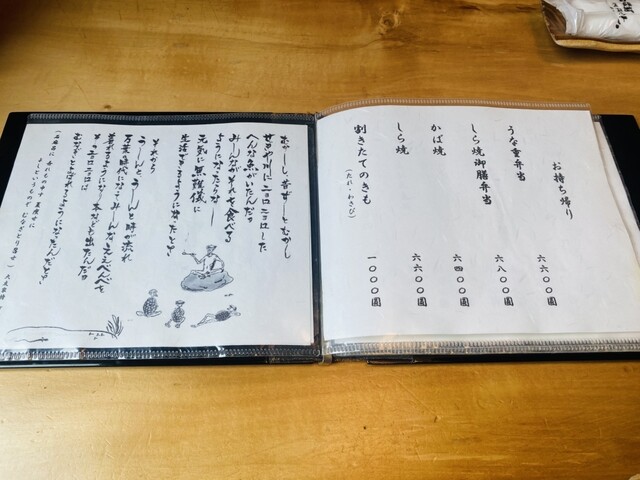 お持ち帰り
うな重弁当 六六〇〇圓
しら焼御膳弁当 六八〇〇圓
かば焼 六四〇〇圓
しら焼 六六〇〇圓
割きたてのきも(たれ・わさび) 一〇〇〇圓
ニョロニョロした
へんな魚がいたんだョ
みーんながそれを食べてる
ようになったらなー
元気に無難儀に
生活できるように
それから
うーんと、うーんと時が流れ
万葉時代になって みーんな、ええべべを
着れるようになって 本なども出たんだョ
そのニョロニョロは
むなぎと呼ばれるようになったんだとさ